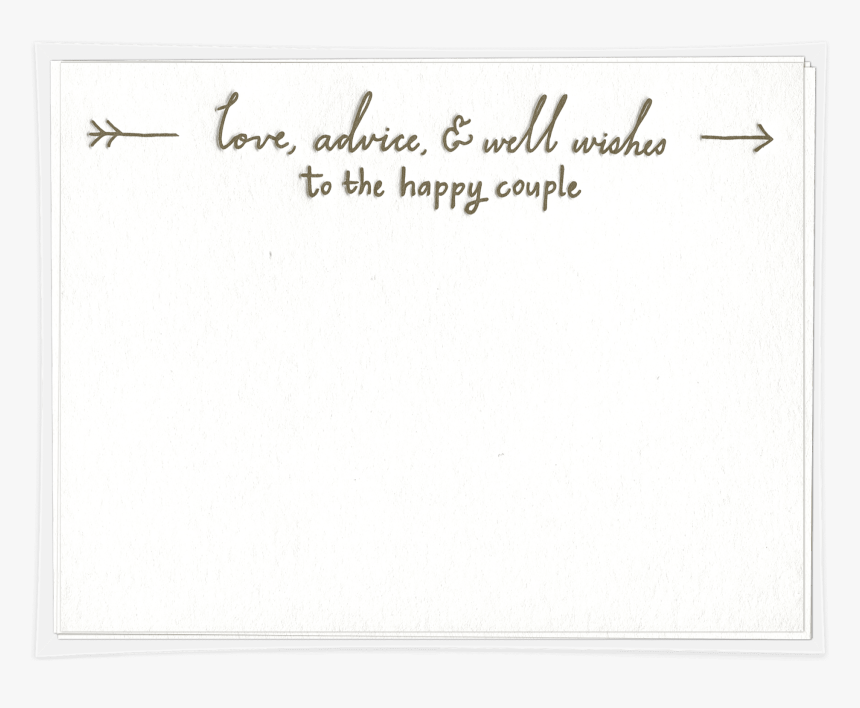 love, advice, & well wishes
to the happy couple